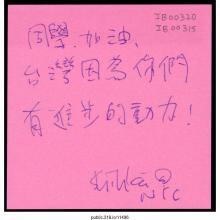 IB00320
IB00315
同學,加油,
台灣因為你們
有進步的動力!
public.318.io/11496